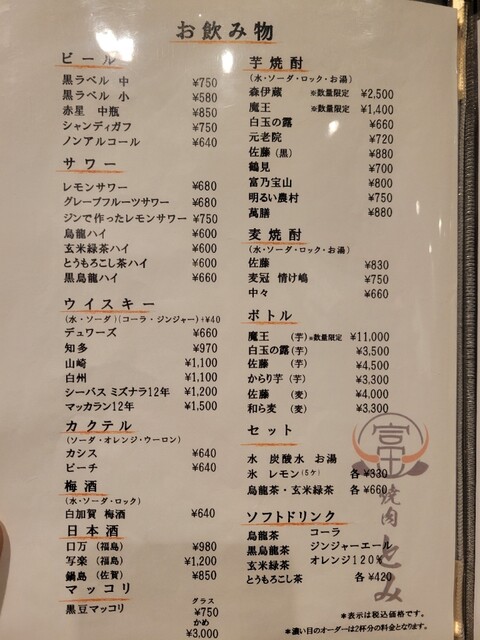 お飲み物
ビール
黒ラベル 中 ¥750
黒ラベル 小 ¥580
赤星 中瓶 ¥850
シャンディガフ ¥750
ノンアルコール ¥640
サワー
レモンサワー ¥680
グレープフルーツサワー ¥680
ジンで作ったレモンサワー ¥750
烏龍ハイ ¥600
玄米緑茶ハイ ¥600
とうもろこし茶ハイ ¥600
黒烏龍ハイ ¥660
ウイスキー
(水・ソーダ)(コーラ・ジンジャー)+¥40
デュワーズ ¥660
知多 ¥970
山崎 ¥1,100
白州 ¥1,100
シーバス ミズナラ12年 ¥1,200
マッカラン12年 ¥1,500
カクテル
(ソーダ・オレンジ・ウーロン)
カシス ¥640
ピーチ ¥640
梅酒
(水・ソーダ・ロック)
白加賀 梅酒 ¥640
日本酒
口万 (福島) ¥980
写楽 (福島) ¥1,200
鍋島 (佐賀) ¥850
マッコリ
グラス
黒豆マッコリ ¥750
かめ
¥3,000
芋焼酎
(水・ソーダ・ロック・お湯)
森伊蔵 ※数量限定 ¥2,500
魔王 ※数量限定 ¥1,400
白玉の露 ¥660
元老院 ¥720
佐藤 (黒) ¥880
鶴見 ¥700
富乃宝山 ¥800
明るい農村 ¥750
萬膳 ¥880
麦焼酎
(水・ソーダ・ロック・お湯)
佐藤 ¥830
麦冠 情け嶋 ¥750
中々 ¥660
ボトル
魔王 (芋)※数量限定 ¥11,000
白玉の露 (芋) ¥3,500
佐藤 (芋) ¥4,500
からり芋 (芋) ¥3,300
佐藤 (麦) ¥4,000
和ら麦 (麦) ¥3,300
セット
水 炭酸水 お湯
氷 レモン(5ケ) 各¥330
烏龍茶・玄米緑茶 各¥660
ソフトドリンク
烏龍茶 コーラ
黒烏龍茶 ジンジャーエール
玄米緑茶 オレンジ120%
とうもろこし茶 各¥420
富
焼肉とみ
*表示は税込価格です。
*濃い目のオーダーは2杯分の料金となります。